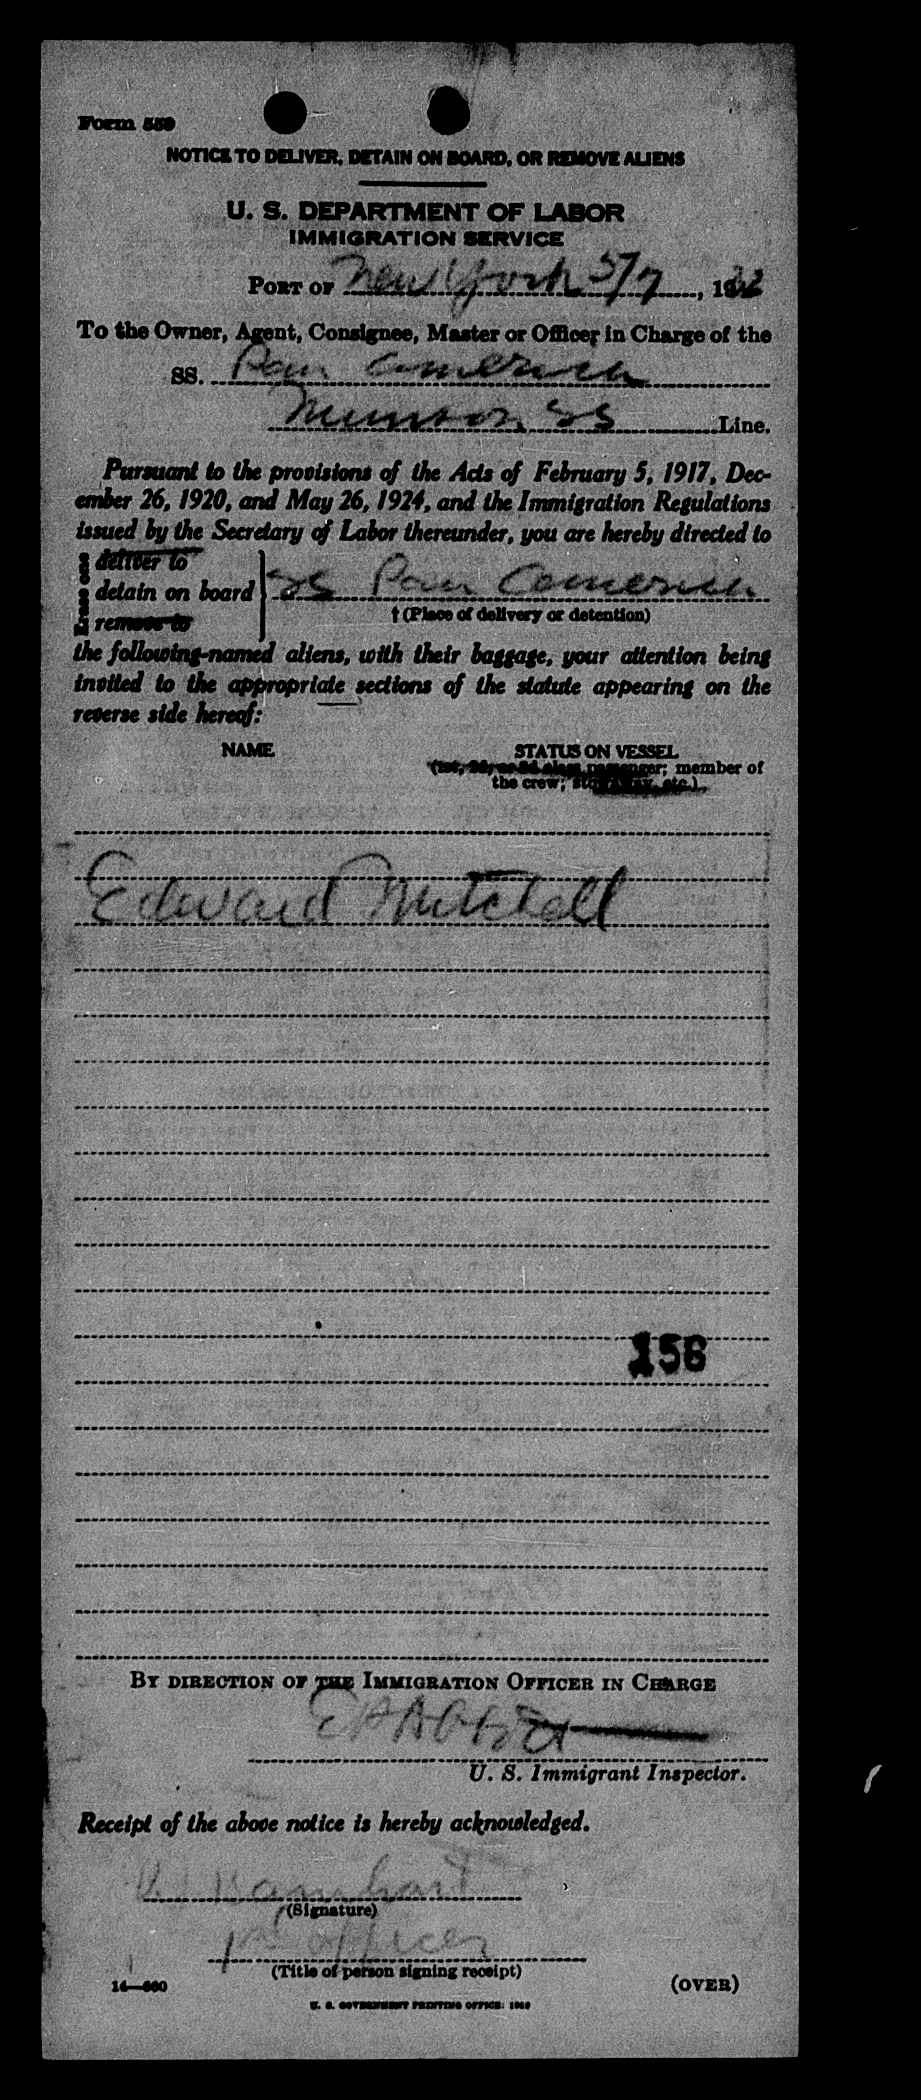 Form 559
NOTICE TO DELIVER, DETAIN ON BOARD, OR REMOVE ALIENS
U. S. DEPARTMENT OF LABOR
IMMIGRATION SERVICE
PORT OF New York 5/7, 19
To the Owner, Agent, Consignee, Master or Officer in Charge of the
SS. Pan America
Munson SS Line.
Pursuant to the provisions of the Acts of February 5, 1917, Dec-
ember 26, 1920, and May 26, 1924, and the Immigration Regulations
issued by the Secretary of Labor thereunder, you are hereby directed to
deliver to
detain on board SS Pan America
remove to
† (Place of delivery or detention)
the following-named aliens, with their baggage, your attention being
invited to the appropriate sections of the statute appearing on the
reverse side hereof:
NAME STATUS ON VESSEL
(1st, 2d, or 3d class passenger; member of
the crew; stowaway, etc.)
Edward Mitchell
156
BY DIRECTION OF THE IMMIGRATION OFFICER IN CHARGE
U. S. Immigrant Inspector.
Receipt of the above notice is hereby acknowledged.
(Signature)
officer
(Title of person signing receipt)
(OVER)
U. S. GOVERNMENT PRINTING OFFICE: